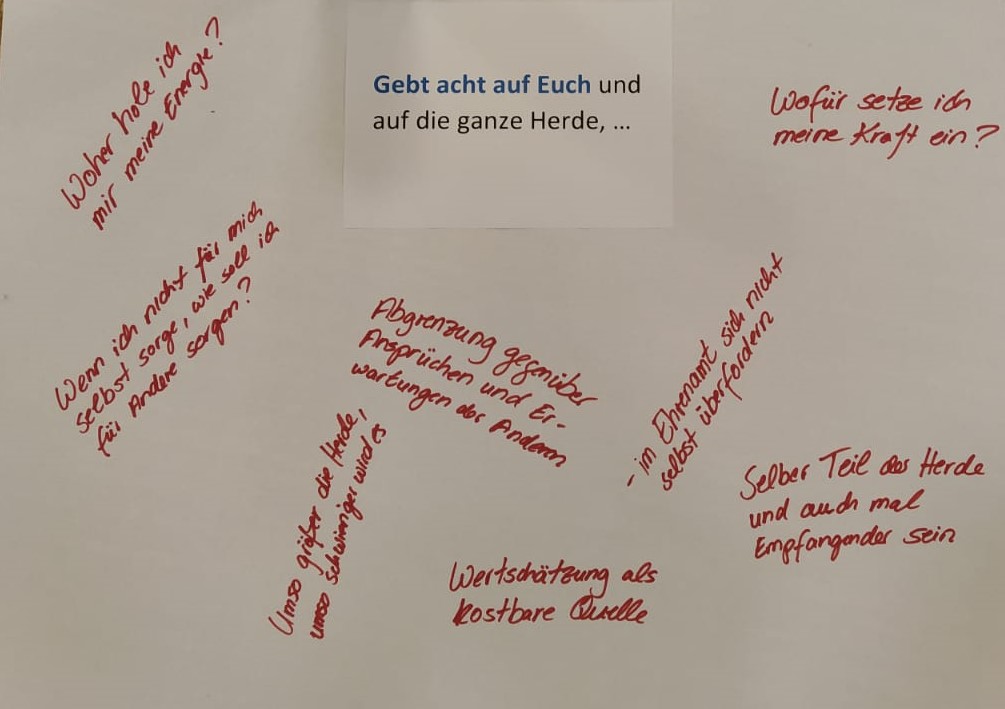 Gebt acht auf Euch und
auf die ganze Herde, ...
Woher hole ich
mir meine Energie?
Wofür setze ich
meine Kraft ein?
Wenn ich nicht für mich
selbst sorge, wie soll ich
für Andere sorgen?
Abgrenzung gegenüber
Ansprüchen und Er-
wartungen der Anderen
- im Ehrenamt sich nicht
selbst überfordern
Umso größer die Herde,
umso schwieriger wird es
Selber Teil der Herde
und auch mal
Empfangender sein
Wertschätzung als
kostbare Quelle